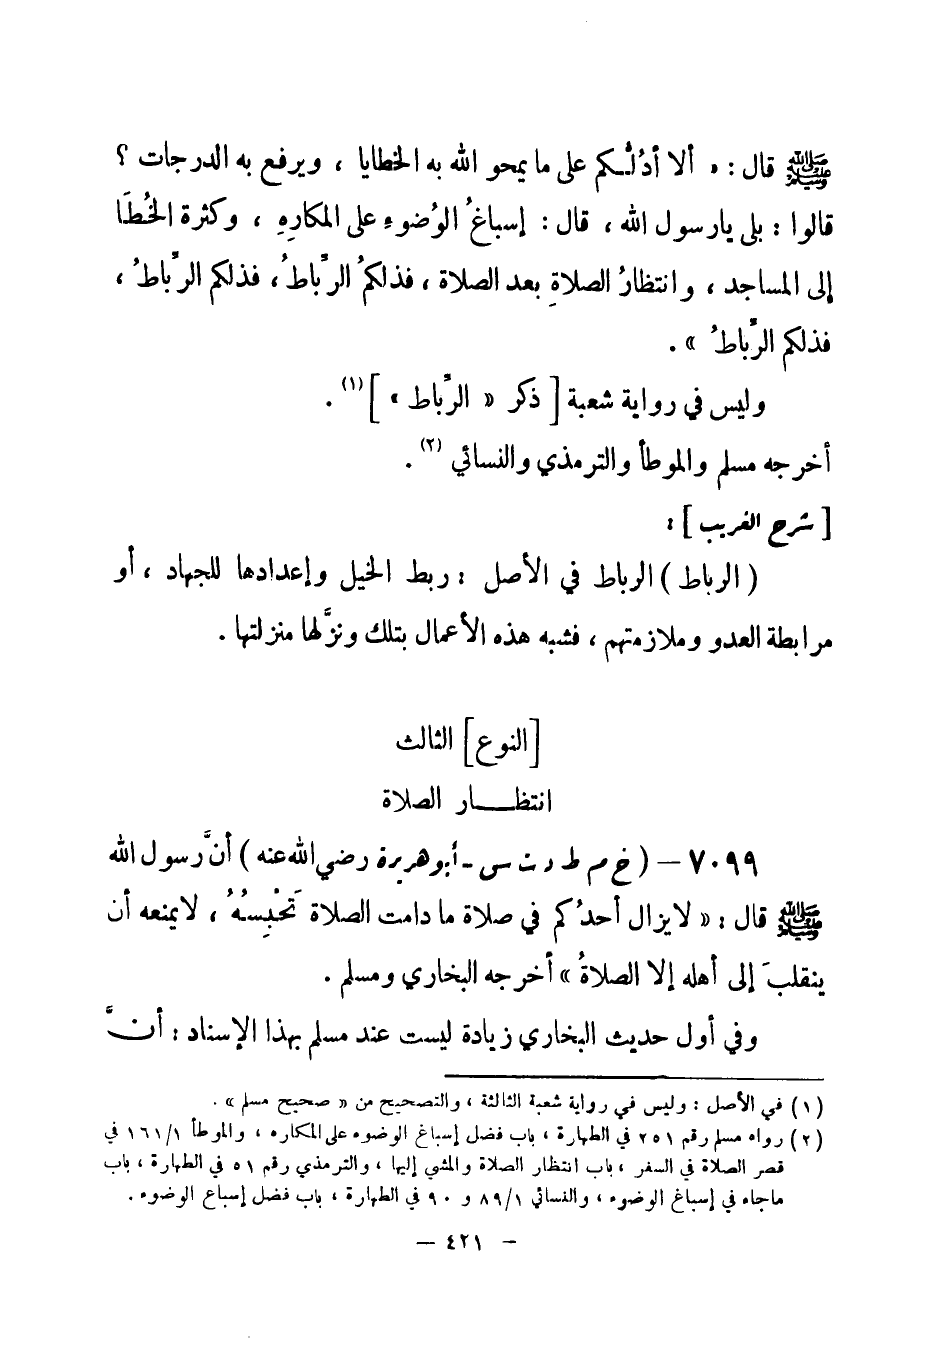 ﷺ قال : « ألا أدُلُّكم على ما يمحو الله به الخطايا ، ويرفع به الدرجات ؟
قالوا : بلى يارسول الله ، قال : إسباغُ الوُضوءِ على المكارِهِ ، وكثرة الخُطَا
إلى المساجد ، وانتظارُ الصلاةِ بعد الصلاة ، فذلكمُ الرِّباطُ ، فذلكم الرِّباطُ ،
فذلكم الرِّباطُ » .
وليس في رواية شعبة [ ذكر « الرِّباط » ] (١) .
أخرجه مسلم والموطأ والترمذي والنسائي (٢) .
[ شرح الغريب ] :
( الرباط ) الرباط في الأصل : ربط الخيل وإعدادها للجهاد ، أو
مرابطة العدو وملازمتهم ، فشبه هذه الأعمال بتلك ونزَّلها منزلتها .
[النوع] الثالث
انتظــــار الصلاة
٧٠٩٩ – ( خ م ط د ت س - أبو هريرة رضي الله عنه ) أنَّ رسول الله
ﷺ قال : « لايزال أحدُكم في صلاة ما دامت الصلاة تَحْبِسُهُ ، لايمنعه أن
ينقلبَ إلى أهله إلا الصلاةُ » أخرجه البخاري ومسلم .
وفي أول حديث البخاري زيادة ليست عند مسلم بهذا الإسناد : أنَّ
(١) في الأصل : وليس في رواية شعبة الثالثة ، والتصحيح من « صحيح مسلم » .
(٢) رواه مسلم رقم ٢٥١ في الطهارة ، باب فضل إسباغ الوضوء على المكاره ، والموطأ ١٦١/١ في
قصر الصلاة في السفر ، باب انتظار الصلاة والمشي إليها ، والترمذي رقم ٥١ في الطهارة ، باب
ماجاء في إسباغ الوضوء ، والنسائي ٨٩/١ و ٩٠ في الطهارة ، باب فضل إسباغ الوضوء .
- ٤٢١ –